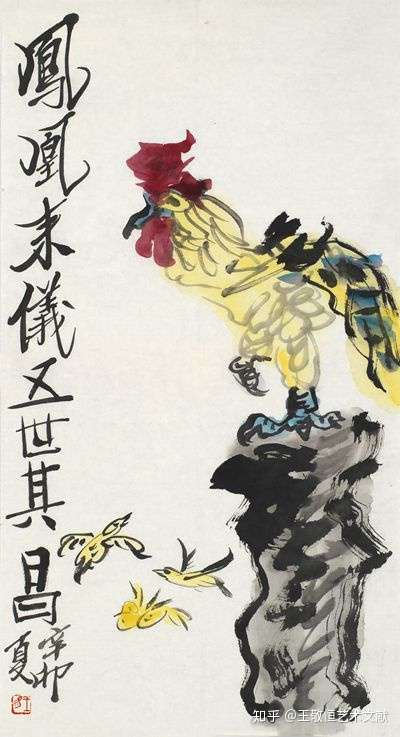 鳳凰来儀五世其昌
辛卯
夏
知乎 @王敬恒艺术文献